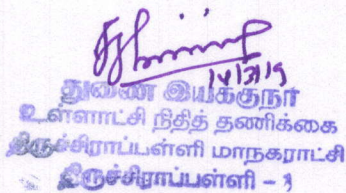 14/3/19
துணை இயக்குநர்
உள்ளாட்சி நிதித் தணிக்கை
திருச்சிராப்பள்ளி மாநகராட்சி
திருச்சிராப்பள்ளி -